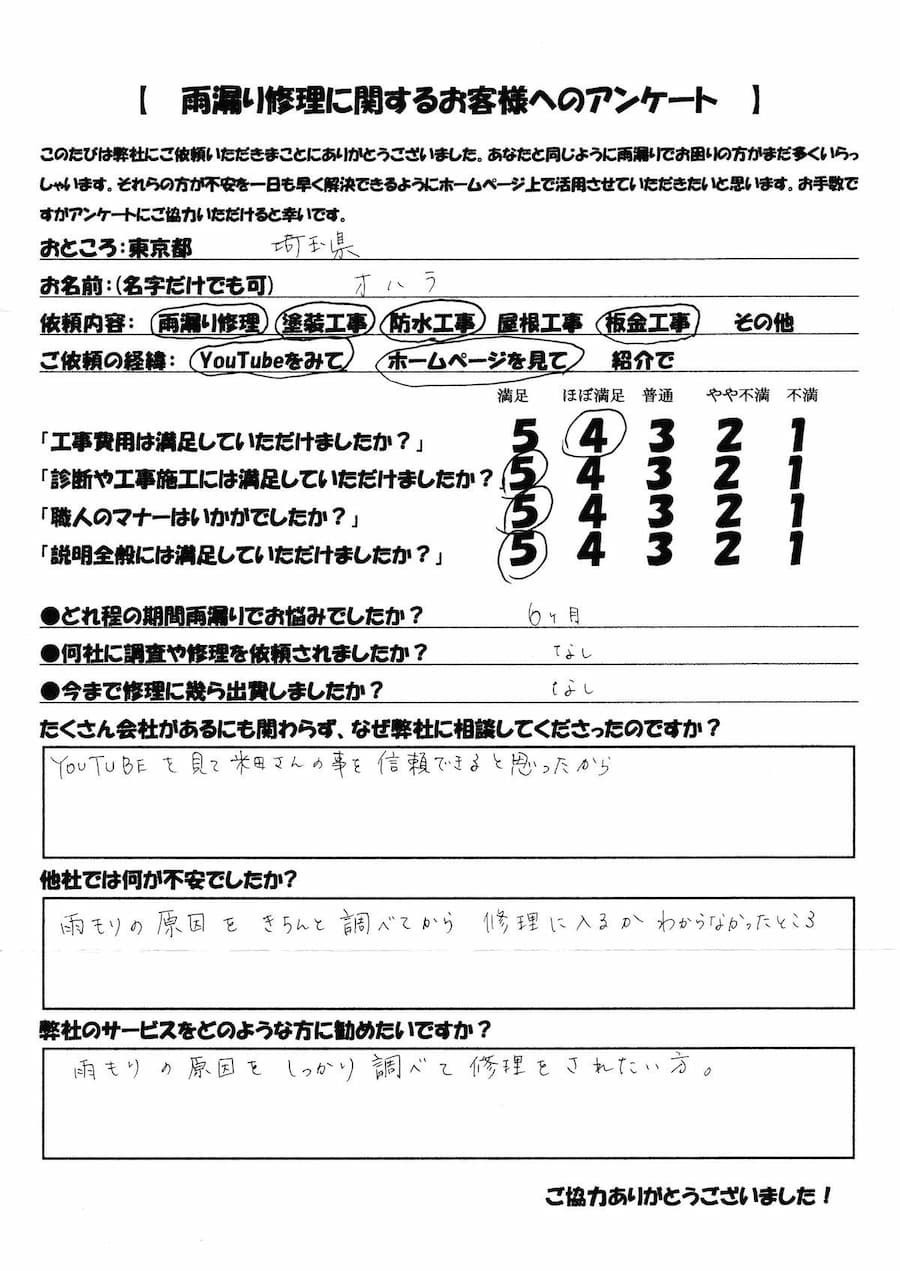 【 雨漏り修理に関するお客様へのアンケート 】
このたびは弊社にご依頼いただきまことにありがとうございました。あなたと同じように雨漏りでお困りの方がまだ多くいらっ
しゃいます。それらの方が不安を一日も早く解決できるようにホームページ上で活用させていただきたいと思います。お手数で
すがアンケートにご協力いただけると幸いです。
おところ：東京都 埼玉県
お名前：（名字だけでも可） オハラ
依頼内容： 雨漏り修理 塗装工事 防水工事 屋根工事 板金工事 その他
ご依頼の経緯： YouTubeをみて ホームページを見て 紹介で
満足 ほぼ満足 普通 やや不満 不満
「工事費用は満足していただけましたか？」 5 4 3 2 1
「診断や工事施工には満足していただけましたか？ 5 4 3 2 1
「職人のマナーはいかがでしたか？」 5 4 3 2 1
「説明全般には満足していただけましたか？」 5 4 3 2 1
●どれ程の期間雨漏りでお悩みでしたか？ 6ヶ月
●何社に調査や修理を依頼されましたか？ なし
●今まで修理に幾ら出費しましたか？ なし
たくさん会社があるにも関わらず、なぜ弊社に相談してくださったのですか？
YOUTUBEを見て米田さんの事を信頼できると思ったから
他社では何が不安でしたか？
雨もりの原因をきちんと調べてから 修理に入るかわからなかったところ
弊社のサービスをどのような方に勧めたいですか？
雨もりの原因をしっかり調べて修理をされたい方。
ご協力ありがとうございました！